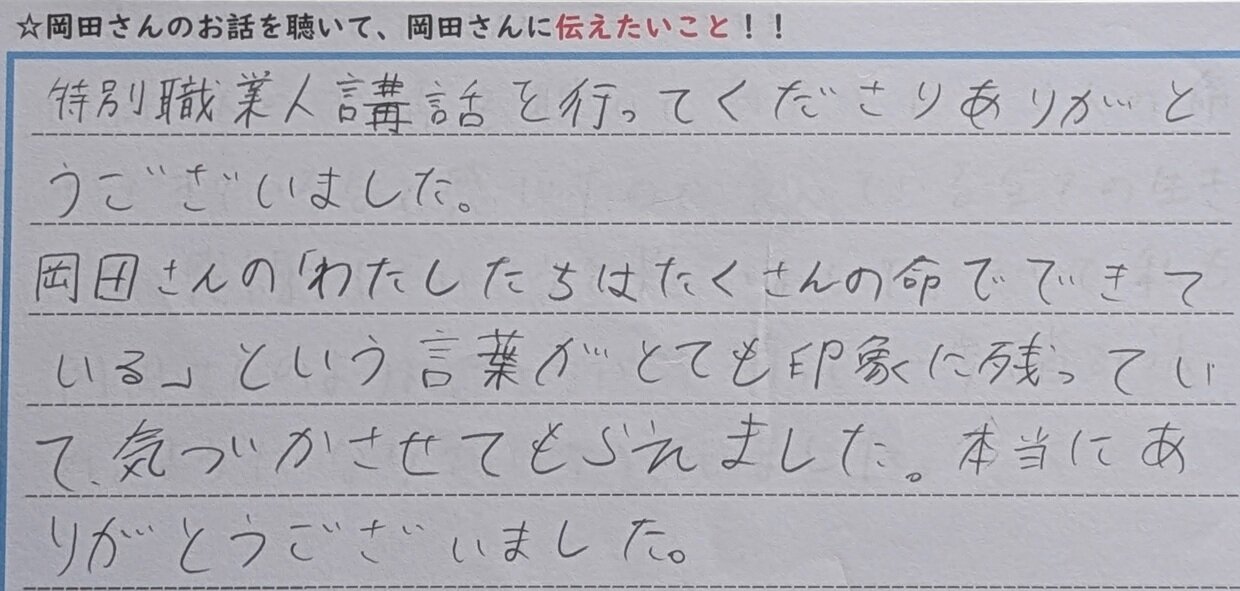 ☆岡田さんのお話を聴いて、岡田さんに伝えたいこと！！
特別職業人講話を行ってくださりありがと
うございました。
岡田さんの「わたしたちはたくさんの命でできて
いる」という言葉がとても印象に残ってい
て、気づかさせてもらえました。本当にあ
りがとうございました。